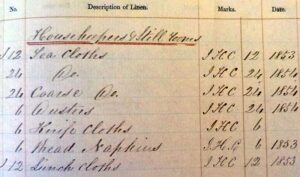 No. Description of Linen. Marks. No. Date
Housekeepers & Still Rooms
12 Tea Cloths I H C 12 1853
24 Do. I H C 24 1854
24 Coarse Do. I H C 24 1854
6 Dusters I H C 24 1854
6 Knife Cloths I H C 6
6 Bread Napkins I.H.C 6 1853
12 Lunch Cloths I H C 12 1853